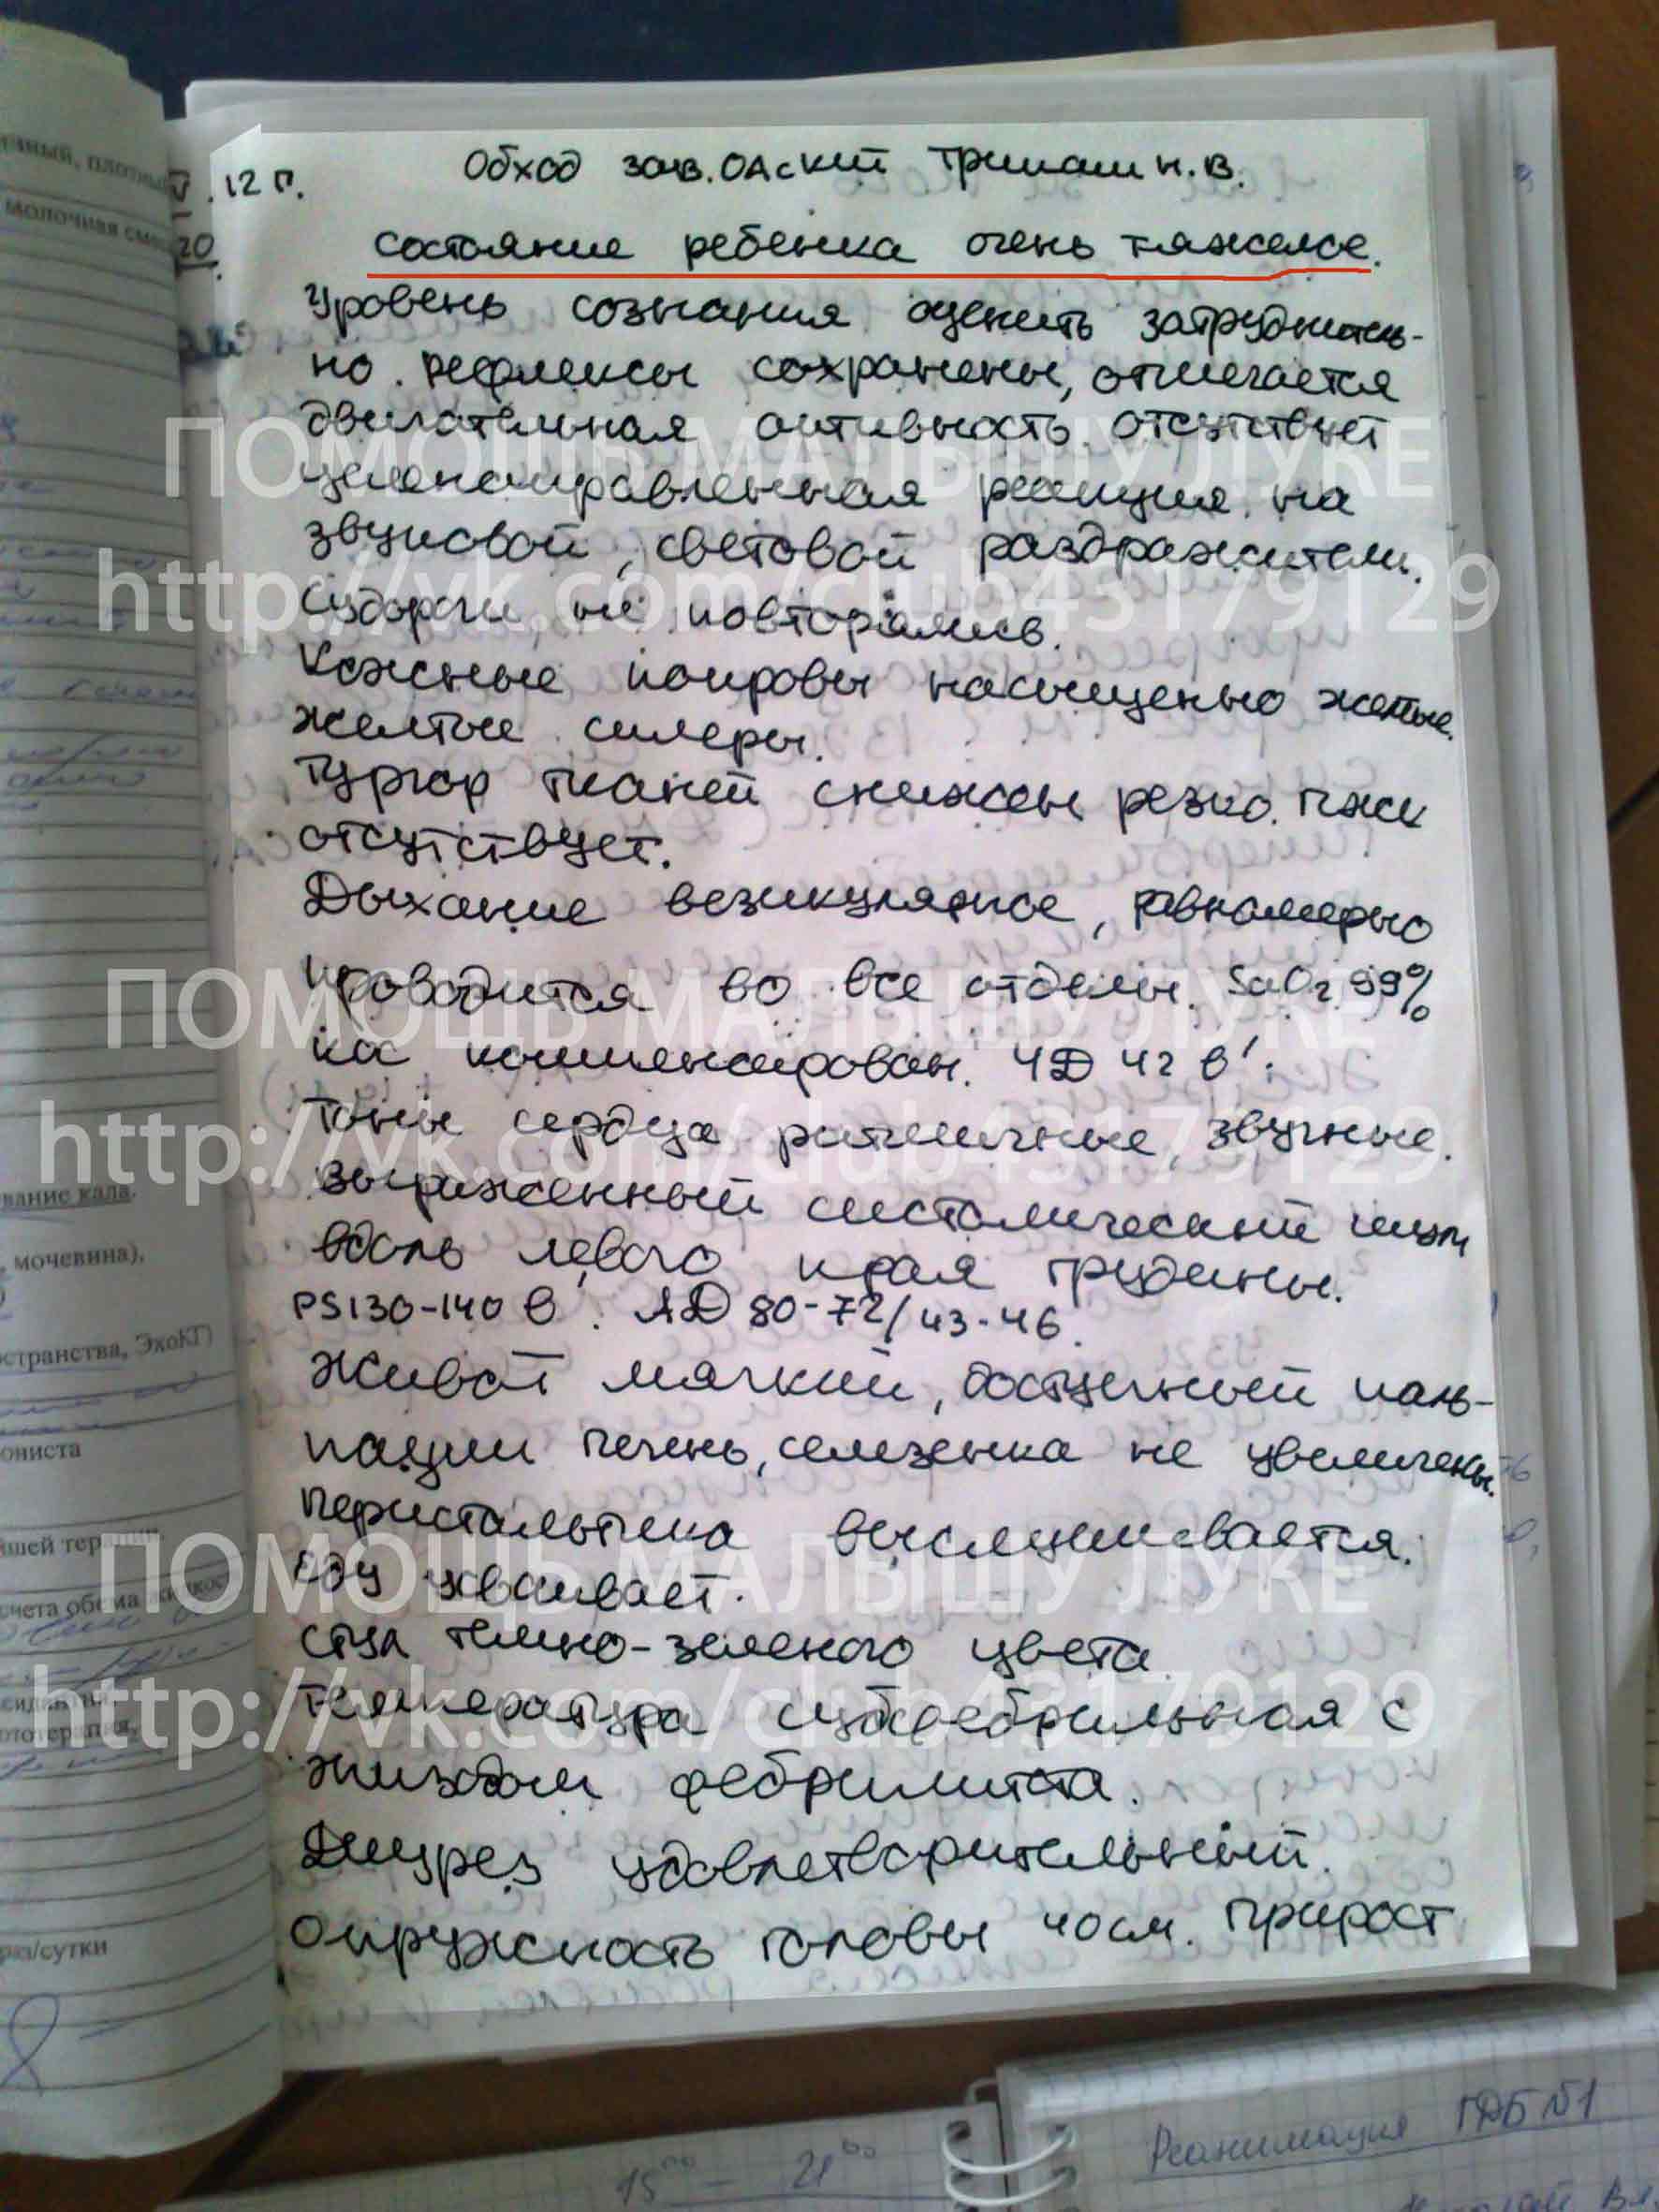 V.12 г. Обход зав. ОАСКИТ Тримаш Н.В.
20
Состояние ребенка очень тяжелое.
Уровень сознания оценить затруднитель-
но. Рефлексы сохранены, отмечается
двигательная активность. отсутствует
целенаправленная реакция на
звуковой, световой раздражители.
Судороги не повторялись.
Кожные покровы насыщенно желтые.
Желтые склеры.
Тургор тканей снижен резко. ПЖК
отсутствует.
Дыхание везикулярное, равномерно
проводится во все отделы. SaO2 99%
компенсирован. ЧД 42 в'.
Тоны сердца ритмичные, звучные.
Выраженный систолический шум
вдоль левого края грудины.
PS 130-140 в'. АД 80-72/43-46.
Живот мягкий, доступный паль-
пации печень, селезенка не увеличены.
Перистальтика выслушивается.
Еду усваивает.
Стул темно-зеленого цвета.
Температура субфебрильная с
эпизодом фебрилитета.
Диурез удовлетворительный.
Окружность головы 40 см. Прирост
ПОМОЩЬ МАЛЫШУ ЛУКЕ
http://vk.com/club43179129
ПОМОЩЬ МАЛЫШУ ЛУКЕ
http://vk.com/club43179129
ПОМОЩЬ МАЛЫШУ ЛУКЕ
http://vk.com/club43179129
молочная
вание кала.
, мочевина),
странства, ЭхоКГ)
ониста
шей терапии
счета обема
раз/сутки
Реанимация ГДБ №1
15⁰⁰ - 21⁰⁰